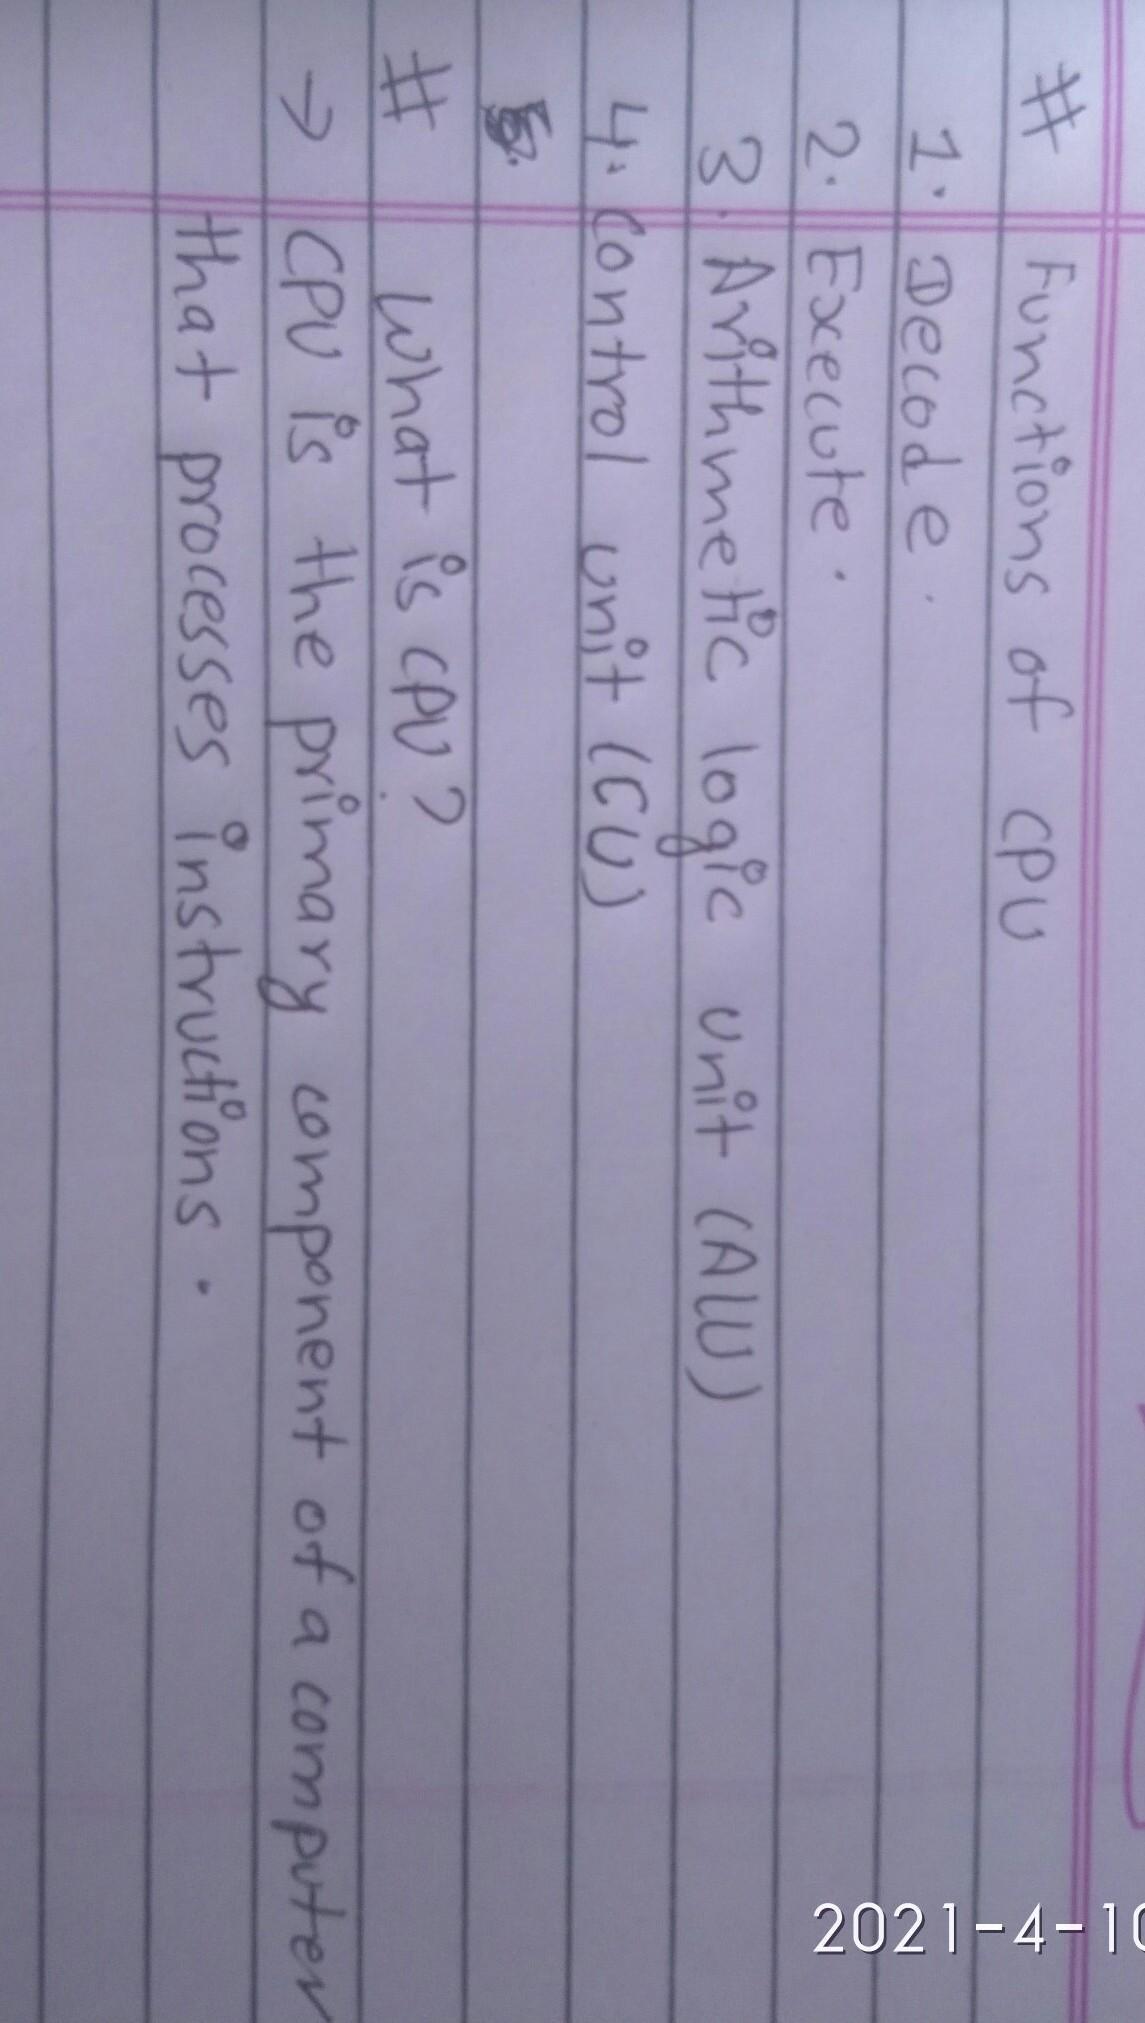 # Functions of CPU
1. Decode.
2. Execute.
3. Arithmetic logic unit (ALU)
4. Control unit (CU)
# What is CPU?
→ CPU is the primary component of a computer
that processes instructions.
2021-4-10